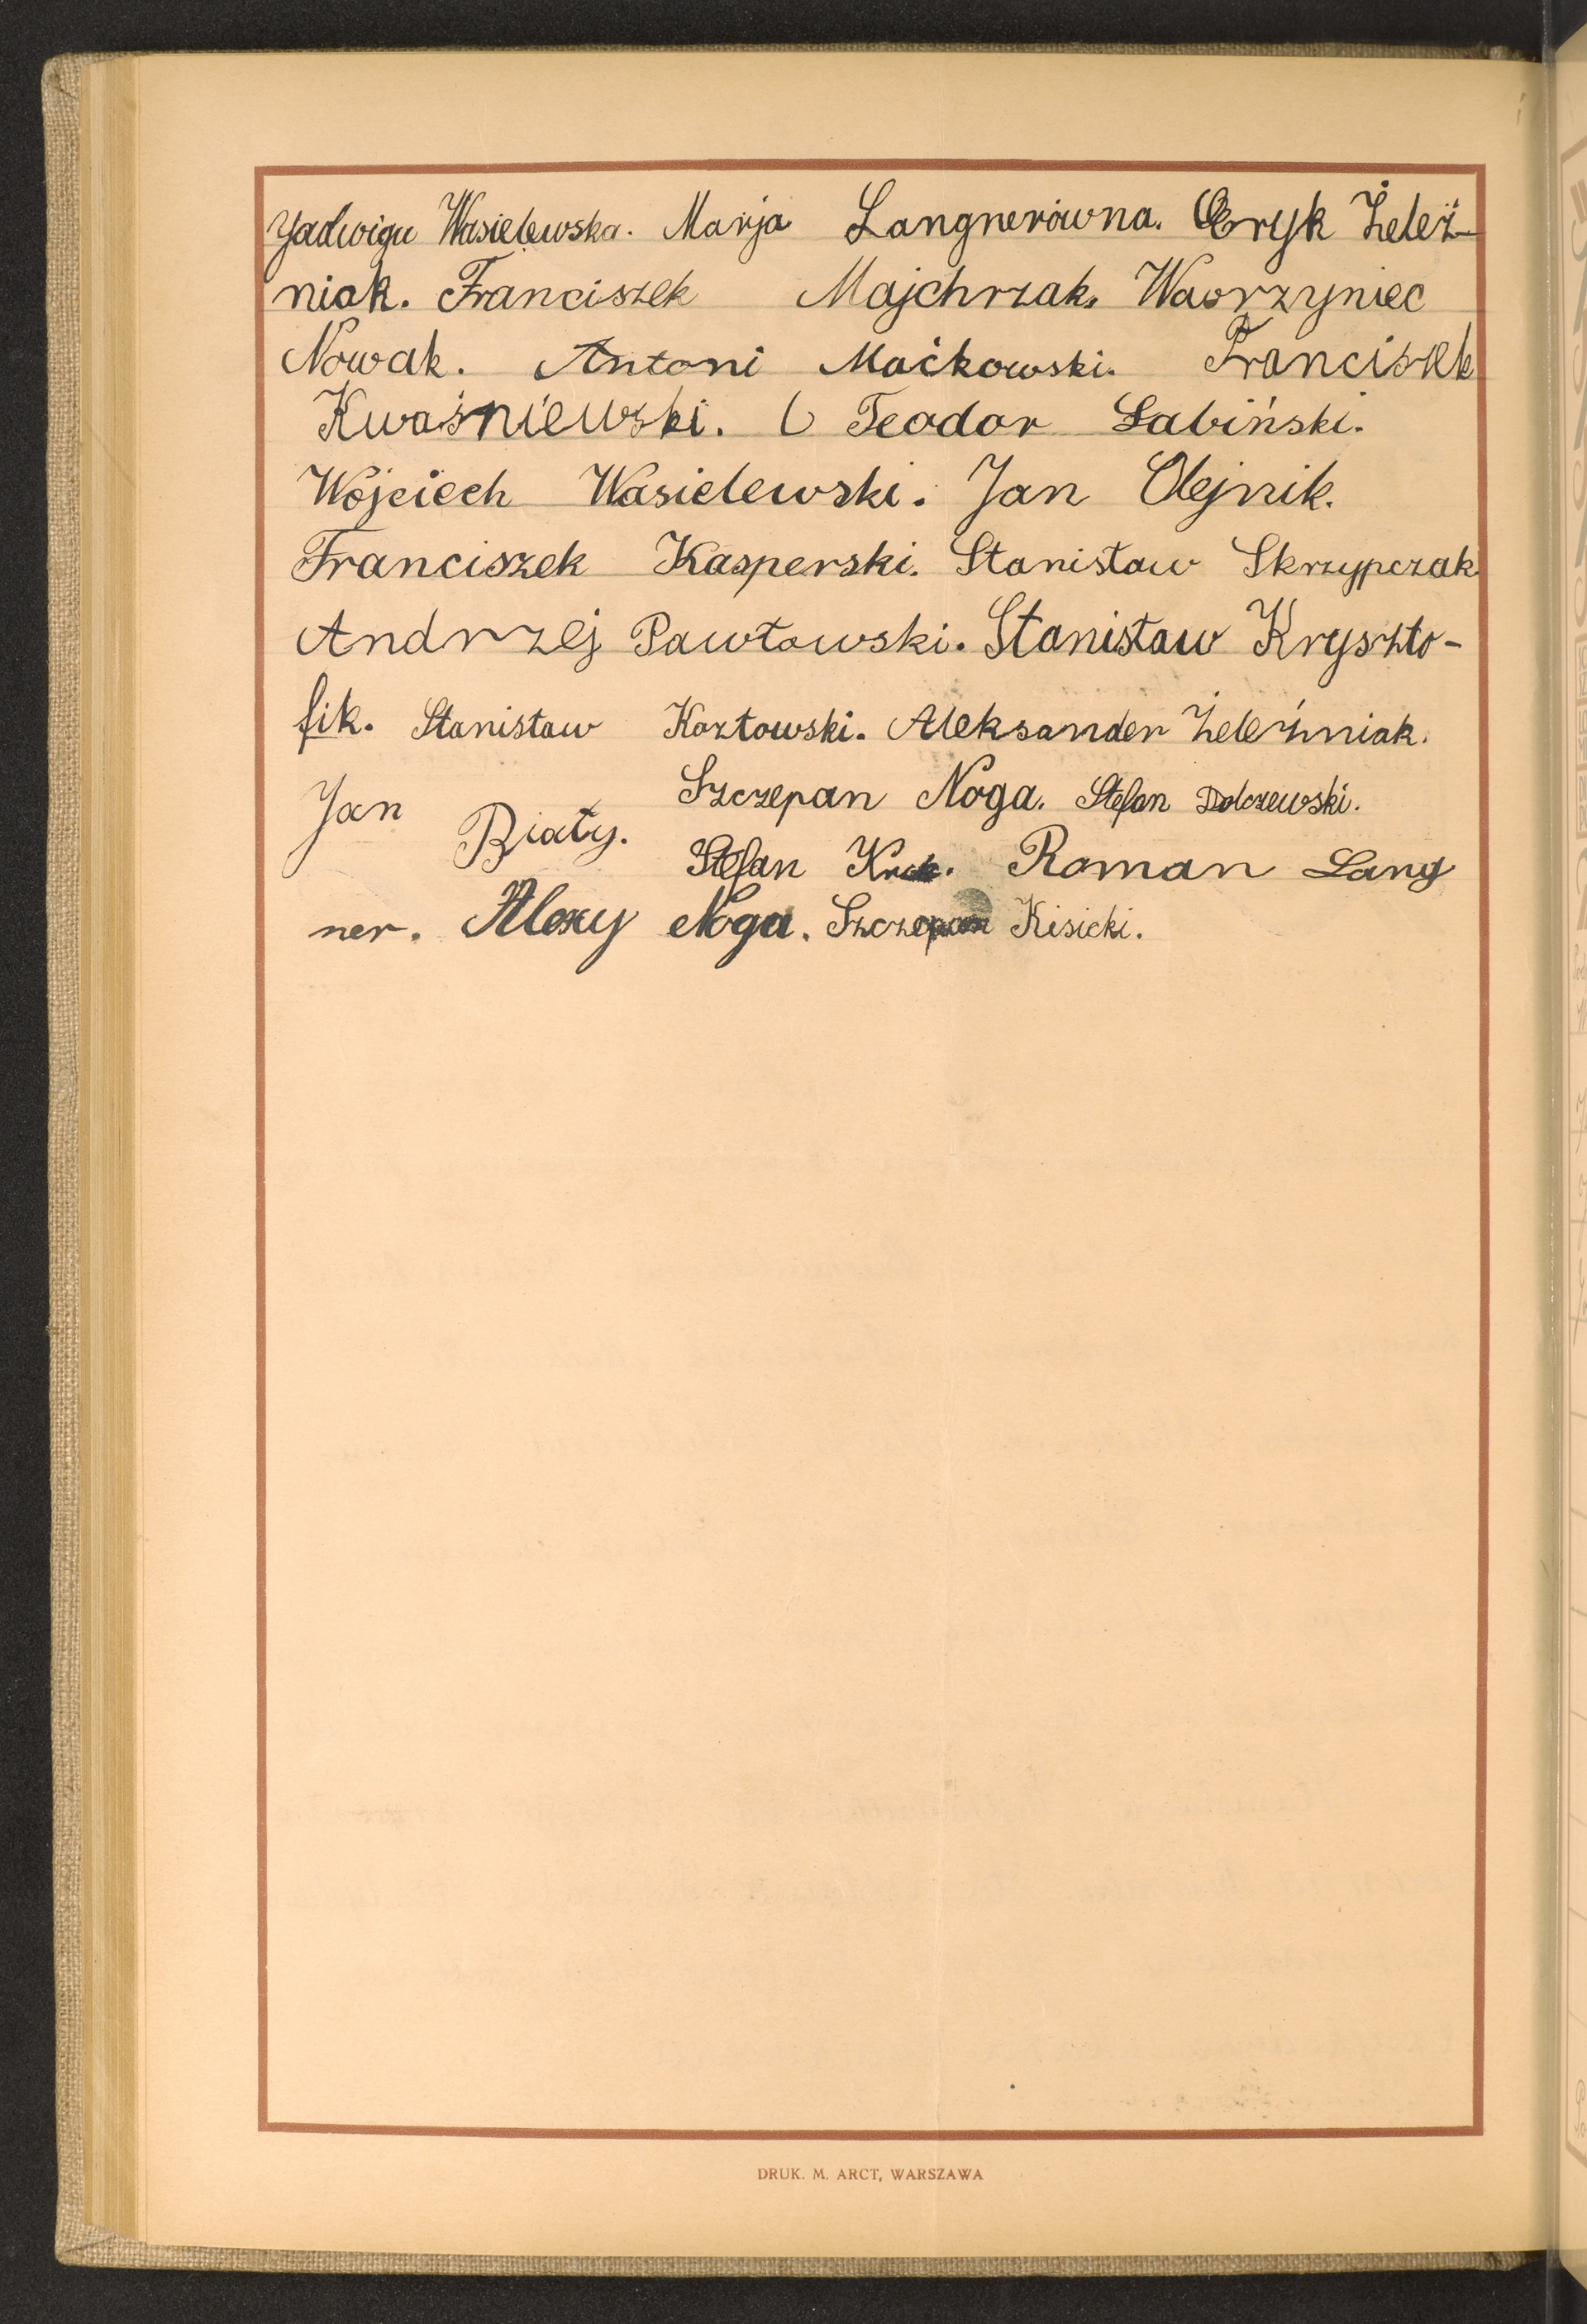 Jadwiga Wasielewska. Marja Langnerówna. Eryk Żeleź-
niak. Franciszek Majchrzak. Wawrzyniec
Nowak. Antoni Maćkowski. Franciszek
Kwaśniewski. Teodor Łabiński.
Wojciech Wasielewski. Jan Olejnik.
Franciszek Kasperski. Stanisław Skrzypczak
Andrzej Pawłowski. Stanisław Kryszto-
fik. Stanisław Kozłowski. Aleksander Żeleźniak.
Jan Biały. Szczepan Noga. Stefan Dolczewski.
Stefan Kruk. Roman Lang
ner. Alexy Noga. Szczepan Kisicki.
DRUK. M. ARCT, WARSZAWA